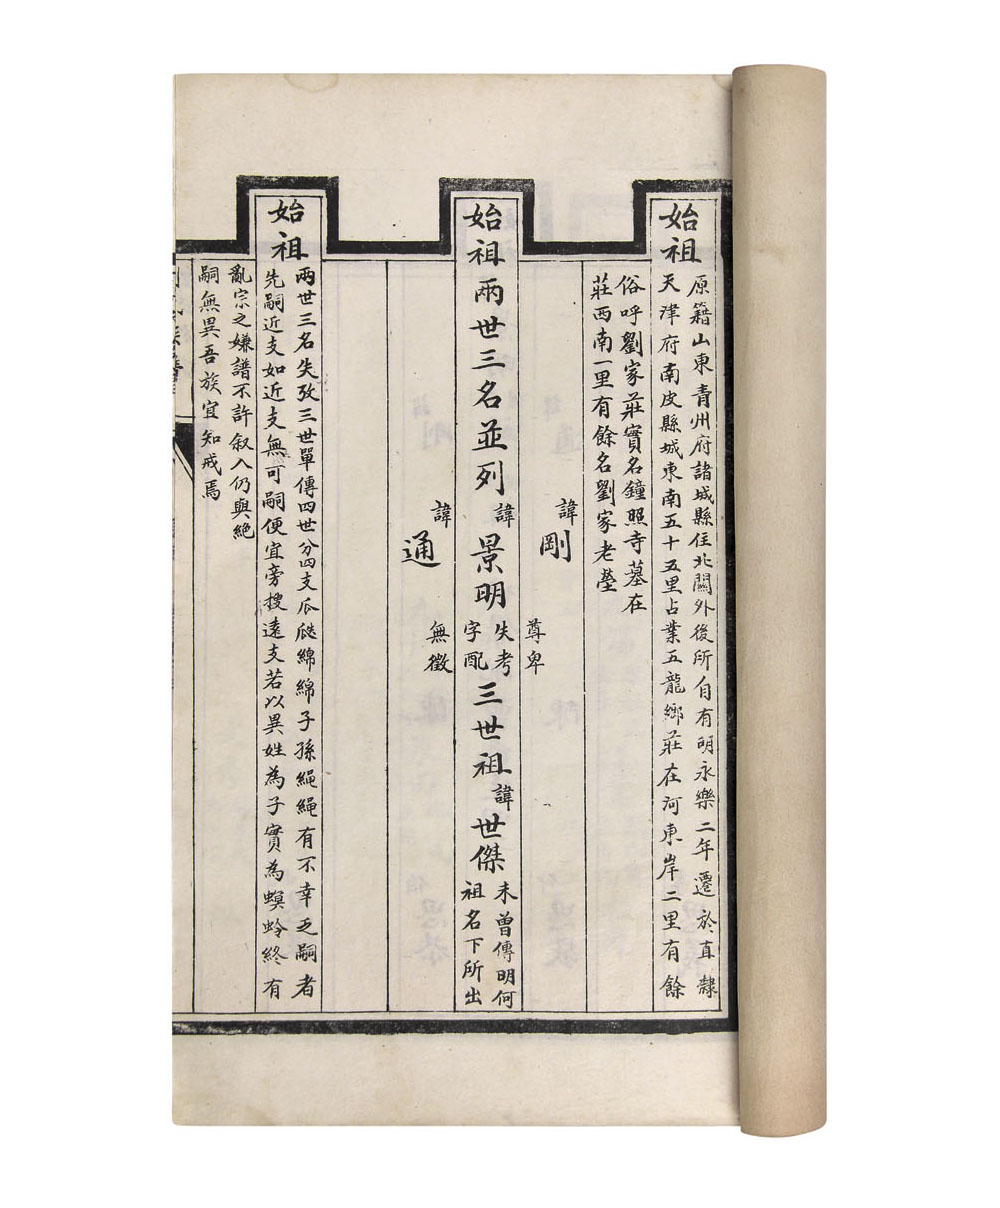 始祖
原籍山東青州府諸城縣住北關外後所自有明永樂二年遷於直隸
天津府南皮縣城東南五十五里占業五龍鄉莊在河東岸二里有餘
俗呼劉家莊實名鐘照寺墓在
莊西南一里有餘名劉家老塋
諱剛
尊卑
始祖兩世三名並列諱景明失考字配三世祖諱世傑未曾傳明何祖名下所出
諱通
無徵
始祖
兩世三名失攷三世單傳四世分四支瓜瓞綿綿子孫繩繩有不幸乏嗣者
先嗣近支如近支無可嗣便宜旁搜遠支若以異姓為子實為螟蛉終有
亂宗之嫌譜不許叙入仍與絕
嗣無異吾族宜知戒焉